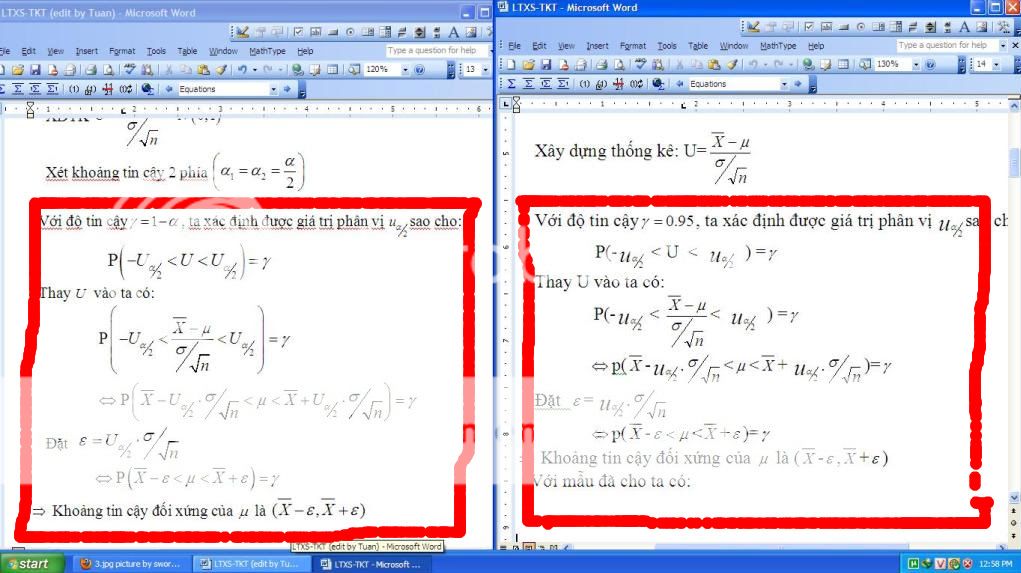 LTXS-TKT (edit by Tuan) - Microsoft Word
File Edit View Insert Format Tools Table Window MathType Help
Type a question for help
120%
13
Equations
σ/√n
Xét khoảng tin cậy 2 phía (α₁ = α₂ = α/2)
Với độ tin cậy γ = 1−α, ta xác định được giá trị phân vị u_{α/2} sao cho:
P(−U_{α/2} < U < U_{α/2}) = γ
Thay U vào ta có:
P(−U_{α/2} < (X̄ − μ)/(σ/√n) < U_{α/2}) = γ
⇔ P(X̄ − U_{α/2}·σ/√n < μ < X̄ + U_{α/2}·σ/√n) = γ
Đặt ε = U_{α/2}·σ/√n
⇔ P(X̄ − ε < μ < X̄ + ε) = γ
⇒ Khoảng tin cậy đối xứng của μ là (X̄ − ε, X̄ + ε)
LTXS-TKT (edit by Tuan) - Microsoft Word
LTXS-TKT - Microsoft Word
File Edit View Insert Format Tools Table Window MathType Help
Type a question for help
130%
14
Equations
Xây dựng thống kê: U= (X̄ − μ)/(σ/√n)
Với độ tin cậy γ = 0.95, ta xác định được giá trị phân vị u_{α/2} sao ch
P(-u_{α/2} < U < u_{α/2} ) = γ
Thay U vào ta có:
P(-u_{α/2} < (X̄ − μ)/(σ/√n) < u_{α/2} ) = γ
⇔ p(X̄ - u_{α/2}.σ/√n < μ < X̄ + u_{α/2}.σ/√n)= γ
Đặt ε = u_{α/2}.σ/√n
⇔ p( X̄ - ε < μ < X̄ + ε)= γ
Khoảng tin cậy đối xứng của μ là ( X̄ - ε, X̄ + ε)
Với mẫu đã cho ta có:
start
3.jpg picture by swor...
LTXS-TKT (edit by Tu...
LTXS-TKT - Microsoft ...
12:58 PM